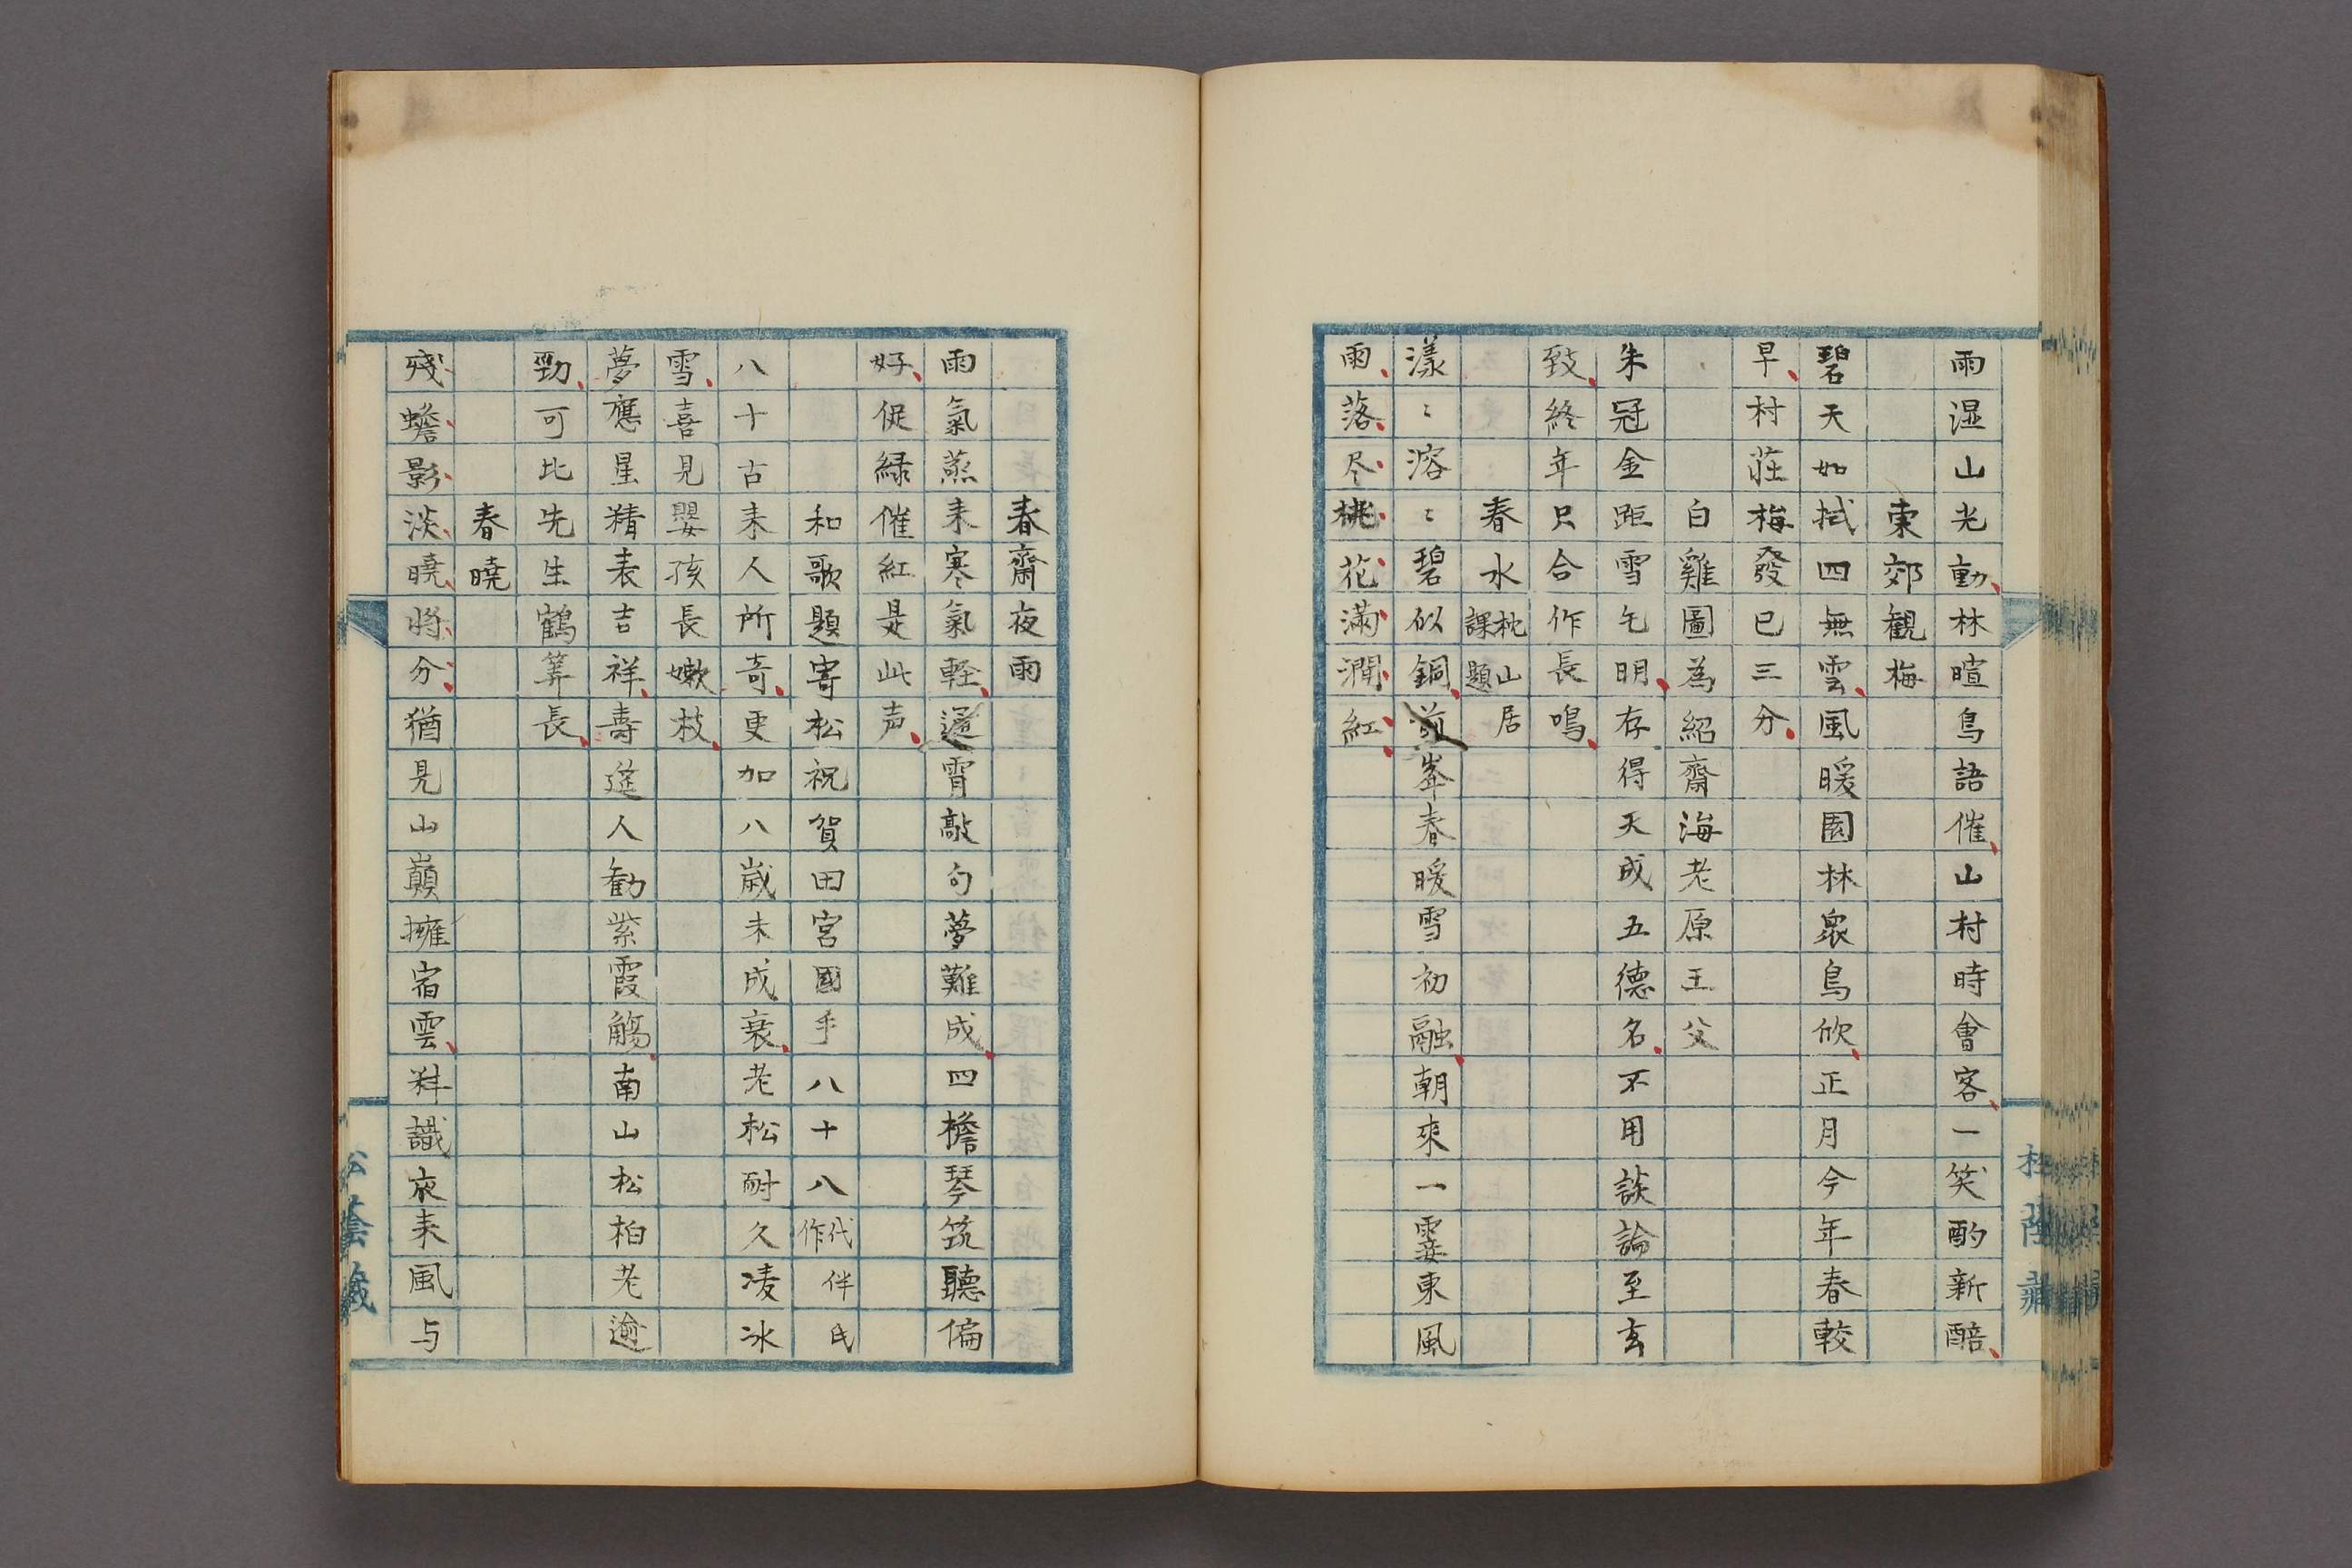 雨湿山光動林暄鳥語催山村時會客一笑酌新醅
東郊観梅
碧天如拭四無雲風暖園林衆鳥欣正月今年春較
早村荘梅發已三分
白雞圖為紹齋海老原王父
朱冠金距雪毛明存得天成五德名不用談論至玄
致終年只合作長鳴
春水枕山居課題
漾〻溶〻碧似銅前峯春暖雪初融朝來一霎東風
雨落尽桃花滿澗紅
春齋夜雨
雨氣蒸来寒氣軽還宵敲句夢難成四檐琴筑聽偏
好促緑催紅是此声
和歌題寄松祝賀田宮國手八十八代伴氏作
八十古来人所奇更加八歳未成衰老松耐久凌冰
雪喜見嬰孩長嫩枝
夢應星精表吉祥壽筵人勧紫霞觴南山松柏老逾
勁可比先生鶴筭長
春曉
殘蟾影淡曉將分猶見山巔擁宿雲料識夜来風与
松蔭藏